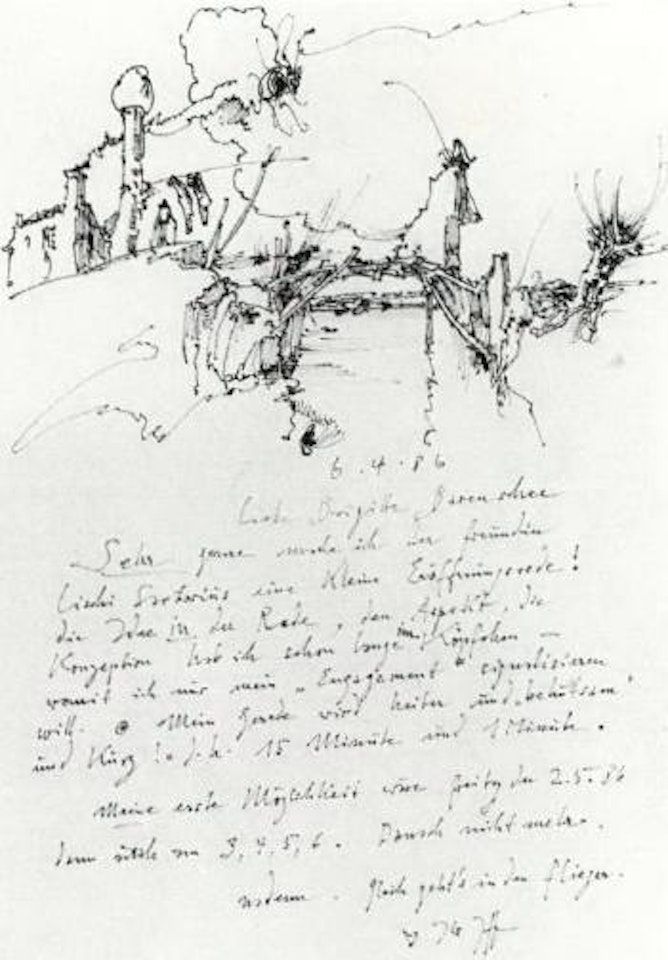 6.4.86
Liebe Brigitte
Sehr gerne mache ich der Freundin
eine kleine Eröffnungsrede!
die Idee der Rede, den Aspekt, die
Konzeption hab ich schon lange im Köpfchen –
womit ich nur mein „Engagement" signalisieren
will. Mein Gerede wird heiter und „behutsam"
und kurz! d.h. 15 Minuten und 1 Minute.
Meine erste Möglichkeit wäre Freitag der 2.5.86
dann 3, 4, 5, 6. Danach nicht mehr.
geht's in den Flieger.